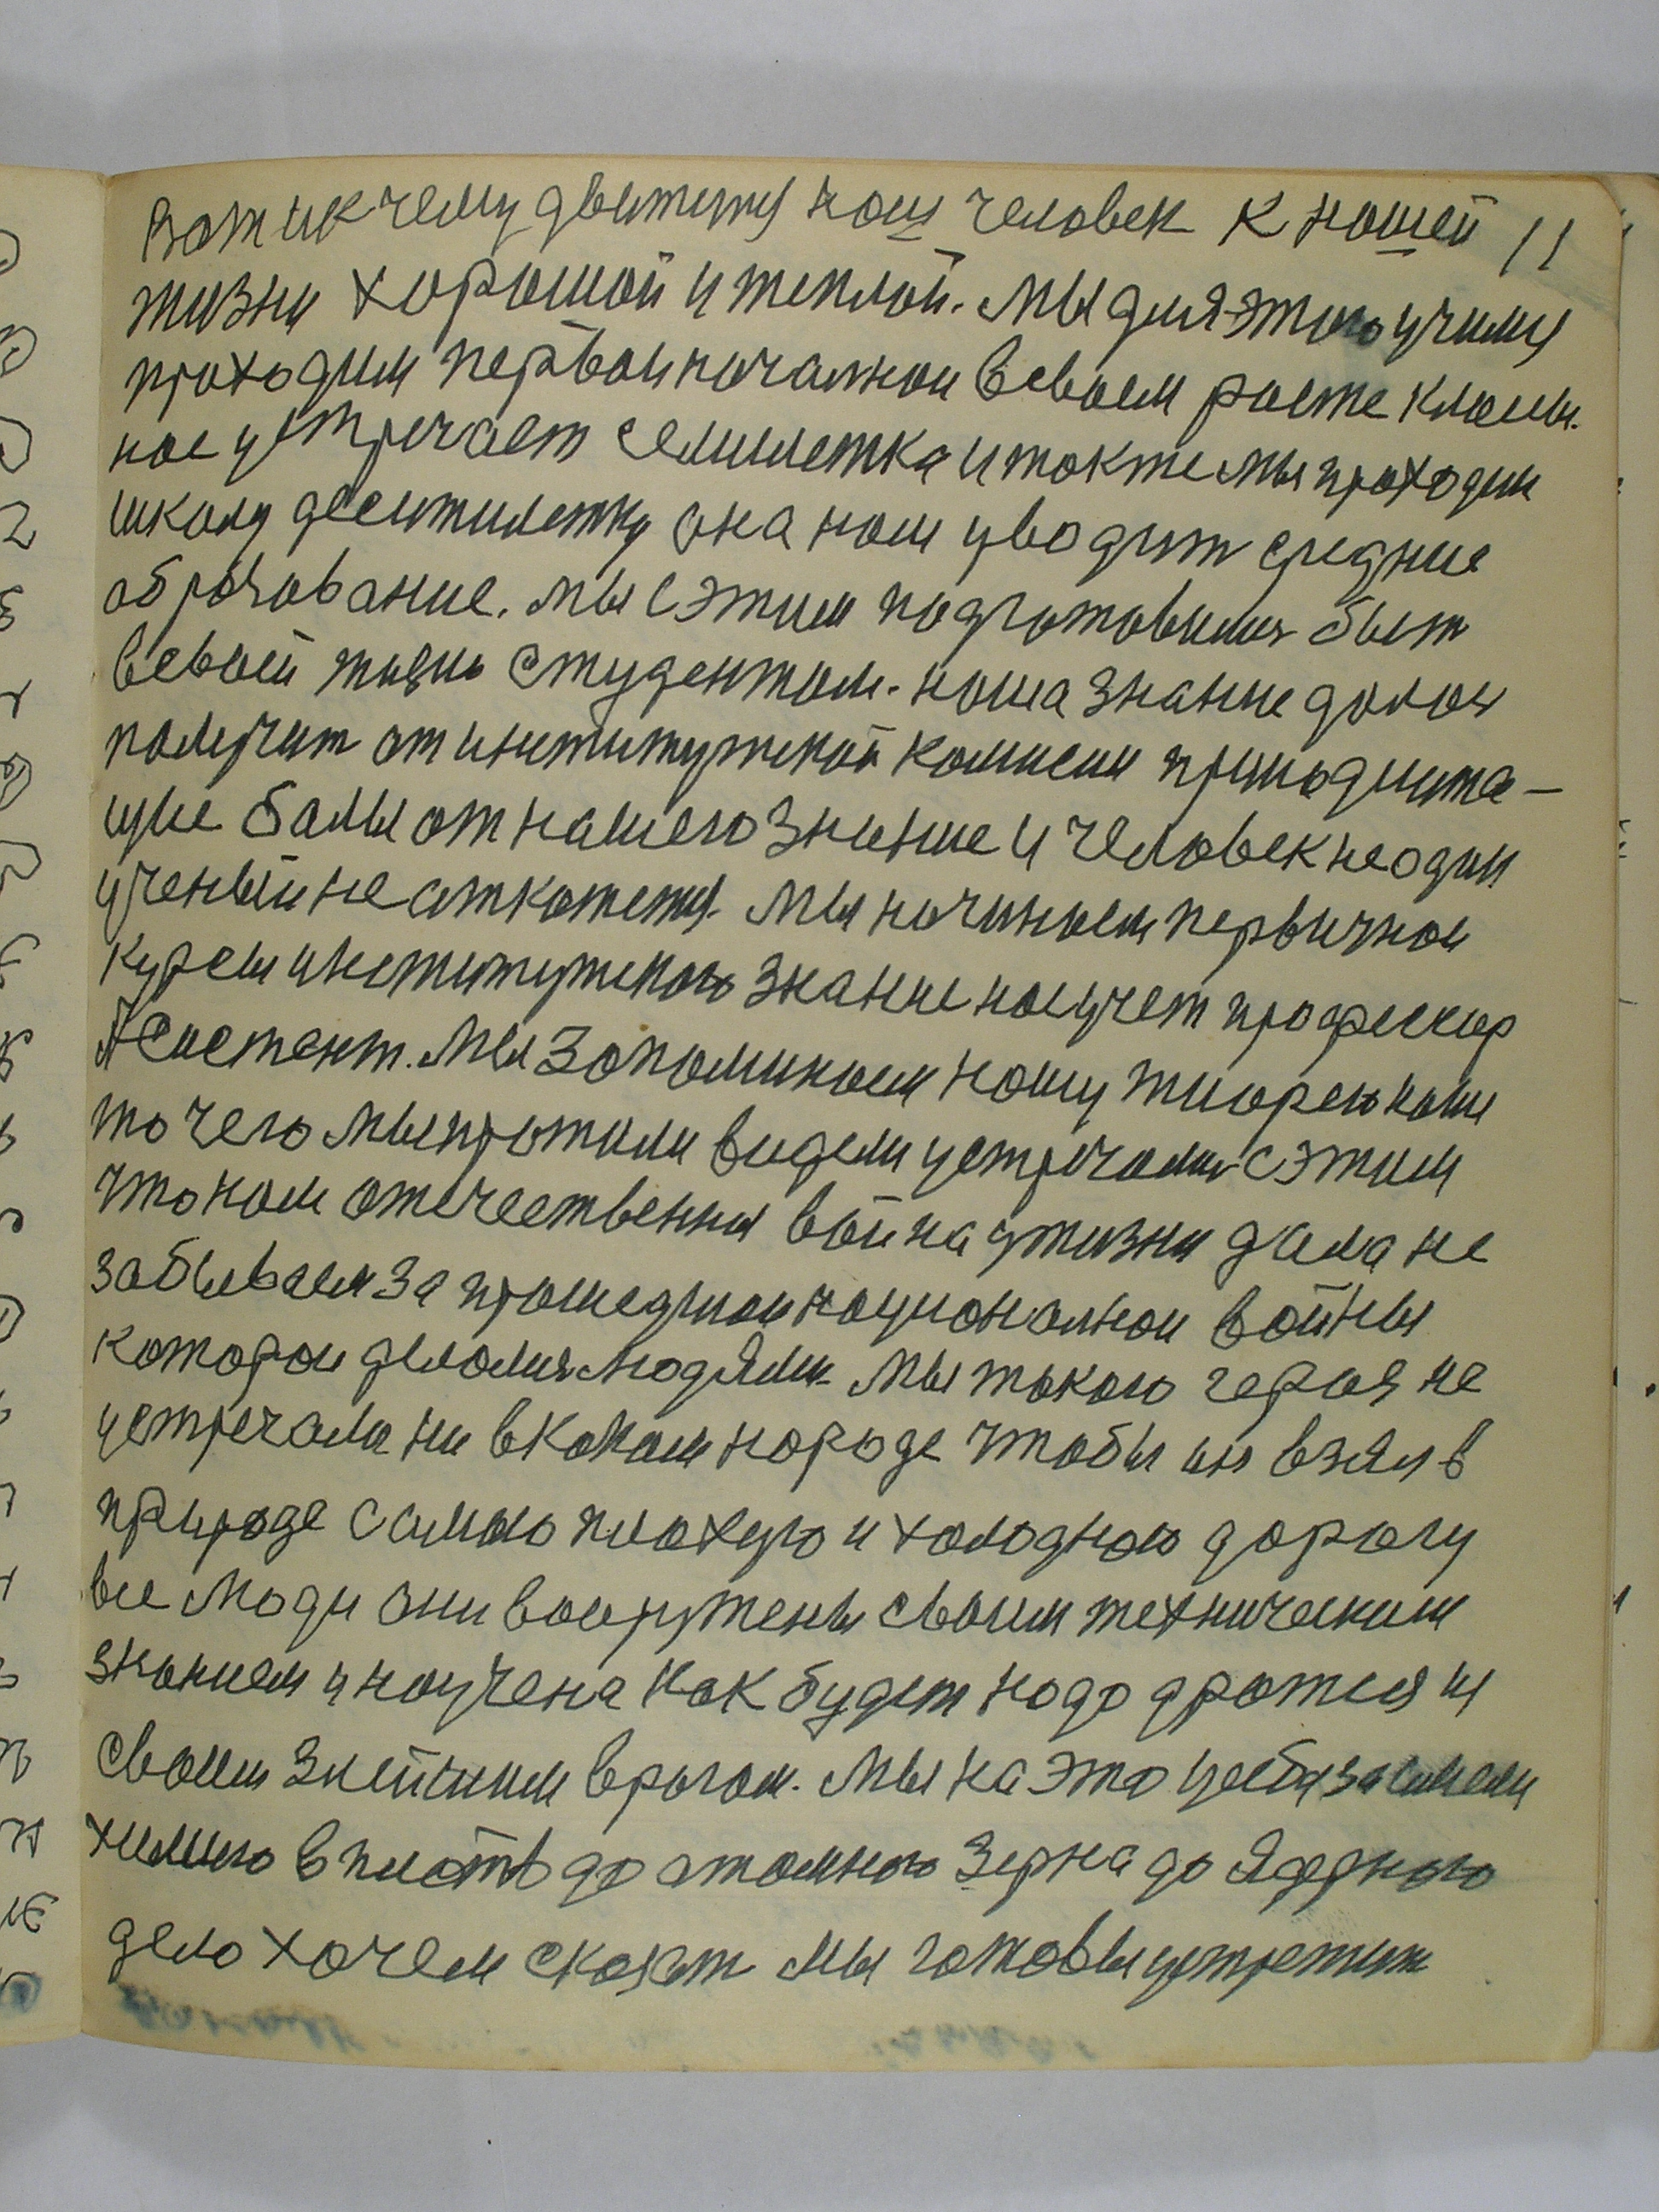 Вот и к чему движется наш человек к нашей 11
жизни хорошой и теплой. Мы для этого учимся
проходим первои началнои в своем росте класы.
нас устречает семилетка и также мы проходим
школу деситилетку она нам уводит средние
образование. мы с этим подготовился быт
в своей жизнь студентам. наша знание должен
получит от институтской комисии
щие балы от нашего знание и человек не один
ученый не откажется. Мы начинаем первичнои
курсы институтского знание нас учет профессор
Асистент. Мы запоминаем нашу тиорею наши
то чего мы прожили видели устречались с этим
что нам отечественны война у жизни дала не
забываем за прошедшои националнои войны
которои делался людями. Мы такого героя не
устречали ни в каком народе чтобы ин взял в
природе самою плохую и холодною дорогу
все люди они вооружены своим техническим
знанием и научена как будет надо дратся и
своим знейшим врагом. Мы на это
химию вплоть до атомного зерна до Ядерного
дело хочем сказат мы готовы устретит